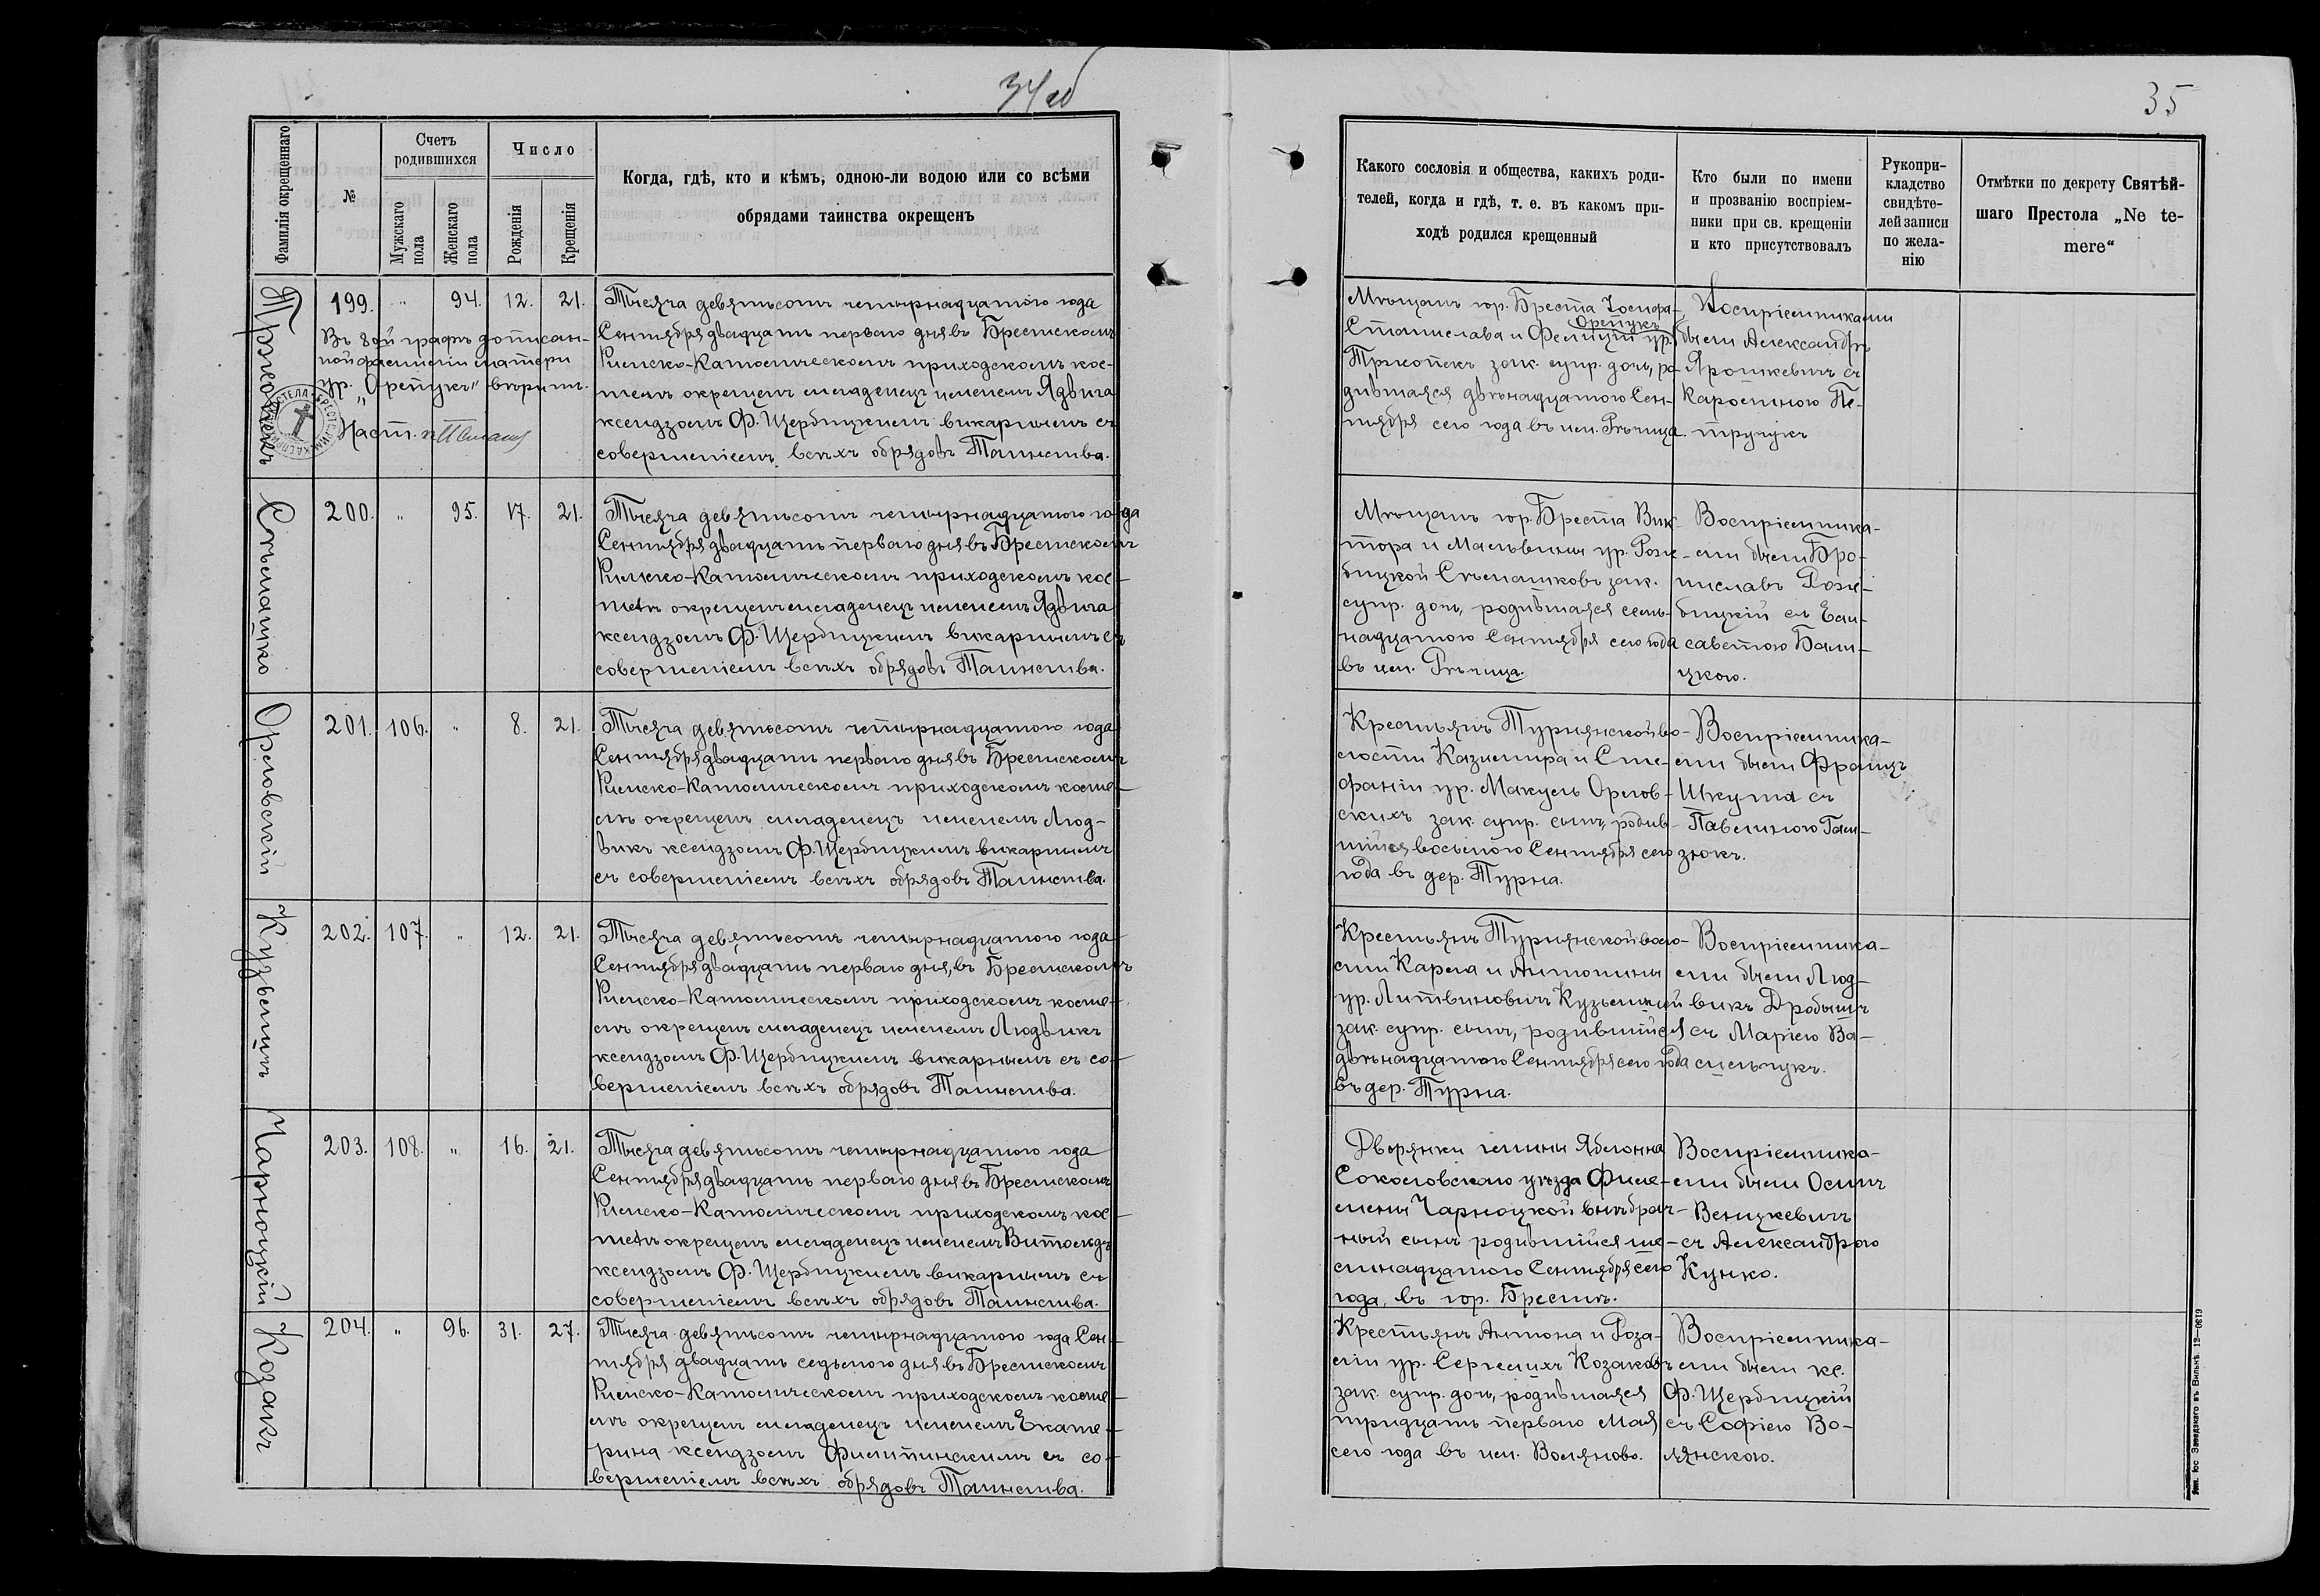 34об
Фамилія окрещеннаго
№
Счетъ
родившихся
Мужскаго
пола
Женскаго
пола
Число
Рожденія
Крещенія
Когда, гдѣ, кто и кѣмъ, одною-ли водою или со всѣми
обрядами таинства окрещенъ
199. „ 94. 12. 21.
Въ 8ой графѣ дописан-
ной фамиліи матери
ур. „Орепукъ" вѣрить.
Наст.
Тысяча девятьсотъ четырнадцатого года
Сентября двадцать перваго дня въ Брестскомъ
Римско-Католическомъ приходскомъ кос-
телѣ окрещенъ младенецъ именемъ Ядвига
ксендзомъ Ф. Щербицкимъ викарнымъ съ
совершеніемъ всѣхъ обрядовъ Таинства.
Сѣмашко
200. „ 95. 17. 21.
Тысяча девятьсотъ четырнадцатого года
Сентября двадцать перваго дня въ Брестскомъ
Римско-Католическомъ приходскомъ кос-
телѣ окрещенъ младенецъ именемъ Ядвига
ксендзомъ Ф. Щербицкимъ викарнымъ съ
совершеніемъ всѣхъ обрядовъ Таинства.
Орловскій
201. 106. „ 8. 21.
Тысяча девятьсотъ четырнадцатого года
Сентября двадцать перваго дня въ Брестскомъ
Римско-Католическомъ приходскомъ косте-
лѣ окрещенъ младенецъ именемъ Люд-
викъ ксендзомъ Ф. Щербицкимъ викарнымъ
съ совершеніемъ всѣхъ обрядовъ Таинства.
202. 107. „ 12. 21.
Тысяча девятьсотъ четырнадцатого года
Сентября двадцать перваго дня, въ Брестскомъ
Римско-Католическомъ приходскомъ косте-
лѣ окрещенъ младенецъ именемъ Людвикъ
ксендзомъ Ф. Щербицкимъ викарнымъ съ со-
вершеніемъ всѣхъ обрядовъ Таинства.
Чарноцкій
203. 108. „ 16. 21.
Тысяча девятьсотъ четырнадцатого года
Сентября двадцать перваго дня въ Брестскомъ
Римско-Католическомъ приходскомъ кос-
телѣ окрещенъ младенецъ именемъ Витольдъ
ксендзомъ Ф. Щербицкимъ викарнымъ съ
совершеніемъ всѣхъ обрядовъ Таинства.
Козакъ
204. „ 96. 31. 27.
Тысяча девятьсотъ четырнадцатого года Сен-
тября двадцать седьмого дня въ Брестскомъ
Римско-Католическомъ приходскомъ косте-
лѣ окрещенъ младенецъ именемъ Екате-
рина ксендзомъ Филипинскимъ съ со-
вершеніемъ всѣхъ обрядовъ Таинства.
35
Какого сословія и общества, какихъ роди-
телей, когда и гдѣ, т. е. въ какомъ при-
ходѣ родился крещенный
Кто были по имени
и прозванію воспріем-
ники при св. крещеніи
и кто присутствовалъ
Рукопри-
кладство
свидѣте-
лей записи
по жела-
нію
Отмѣтки по декрету Святѣй-
шаго Престола „Ne te-
mere"
Мѣщанъ гор. Бреста Іосифа-
Орепукъ
Станислава и Фелиціи ур.
зак. супр. дочь, ро-
дившаяся двѣнадцатого Сен-
тября сего года въ им. Рѣчица.
Воспріемниками
были Александръ
Ярошкевичъ съ
Каролиною Пе-
тручукъ
Мѣщанъ гор. Бреста Вик-
тора и Мальвины ур. Рож-
бицкой Сѣмашковъ зак.
супр. дочь, родившаяся сем-
надцатого Сентября сего года
въ им. Рѣчица.
Воспріемника-
ми были Бро-
ниславъ Рож-
бицкій съ Ели-
саветою Бали-
цкою.
Крестьянъ Турнянской во-
лости Казимира и Сте-
фаніи ур. Макуль Орлов-
скихъ зак. супр. сынъ, родив-
шійся восьмого Сентября сего
года въ дер. Турна.
Воспріемника-
ми были Францъ
Шкута съ
Павлиною Гам-
зюкъ.
Крестьянъ Турнянской воло-
сти Карла и Антонины
ур. Литвиновичъ
зак. супр. сынъ, родившійся
двѣнадцатого Сентября сего года
въ дер. Турна.
Воспріемника-
ми были Люд-
викъ Дробышъ
съ Маріею Ва-
сильчукъ.
Дворянки гмины Яблонна
Соколовскаго уѣзда Фило-
мены Чарноцкой внѣбрач-
ный сынъ родившійся ше-
стнадцатого Сентября сего
года, въ гор. Брестѣ.
Воспріемника-
ми были Осипъ
Венцкевичъ
съ Александрою
Кунко.
Крестьянъ Антона и Роза-
ліи ур. Козаковъ
зак. супр. дочь, родившаяся
тридцать перваго Мая
сего года въ им. Воляново.
Воспріемника-
ми были кс.
Ф. Щербицкій
съ Софіею Во-
лянскою.
Тип. Іос. Завадзкаго въ Вильнѣ. 12—0619